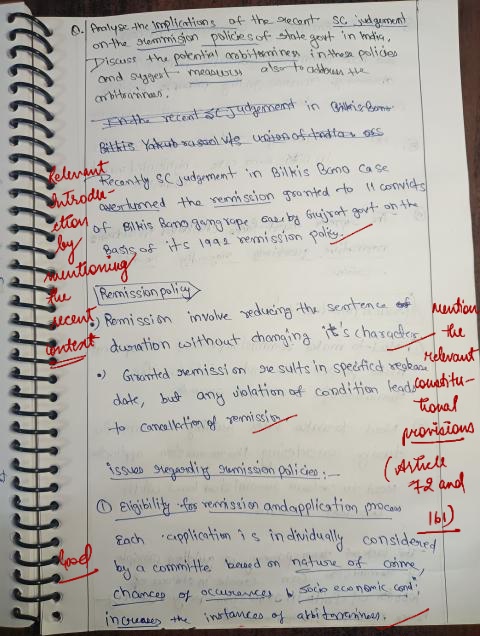 Q. Analyse the implications of the recent SC judgement
on the remmision policies of state govt in India.
Discuss the potential arbitoriness in these policies
and suggest measures also to address the
arbitrariness.
In the recent SC judgement in Bilkis Bano
Bilkis Yakub rasool v/s union of India & ors
Recently SC judgement in Bilkis Bano case
overturned the remission granted to 11 convicts
of Bilkis Bano gangrape case by Gujrat govt on the
Basis of it's 1992 remission policy.
Relevant
Introdu-
ction
by
mentioning
the
recent
context
Remission policy
•) Remission involve reducing the sentence of
duration without changing it's character
•) Granted remission results in specified release
date, but any violation of condition leads
to cancellation of remission.
mention
the
relevant
constitu-
tional
provisions
(Article
72 and
161)
issues regarding remission policies:-
① Eligibility for remission and application process
Each application is individually considered
by a committe based on nature of crime,
chances of occurances & socio economic cond:
increases the instances of arbitorariness.
Good